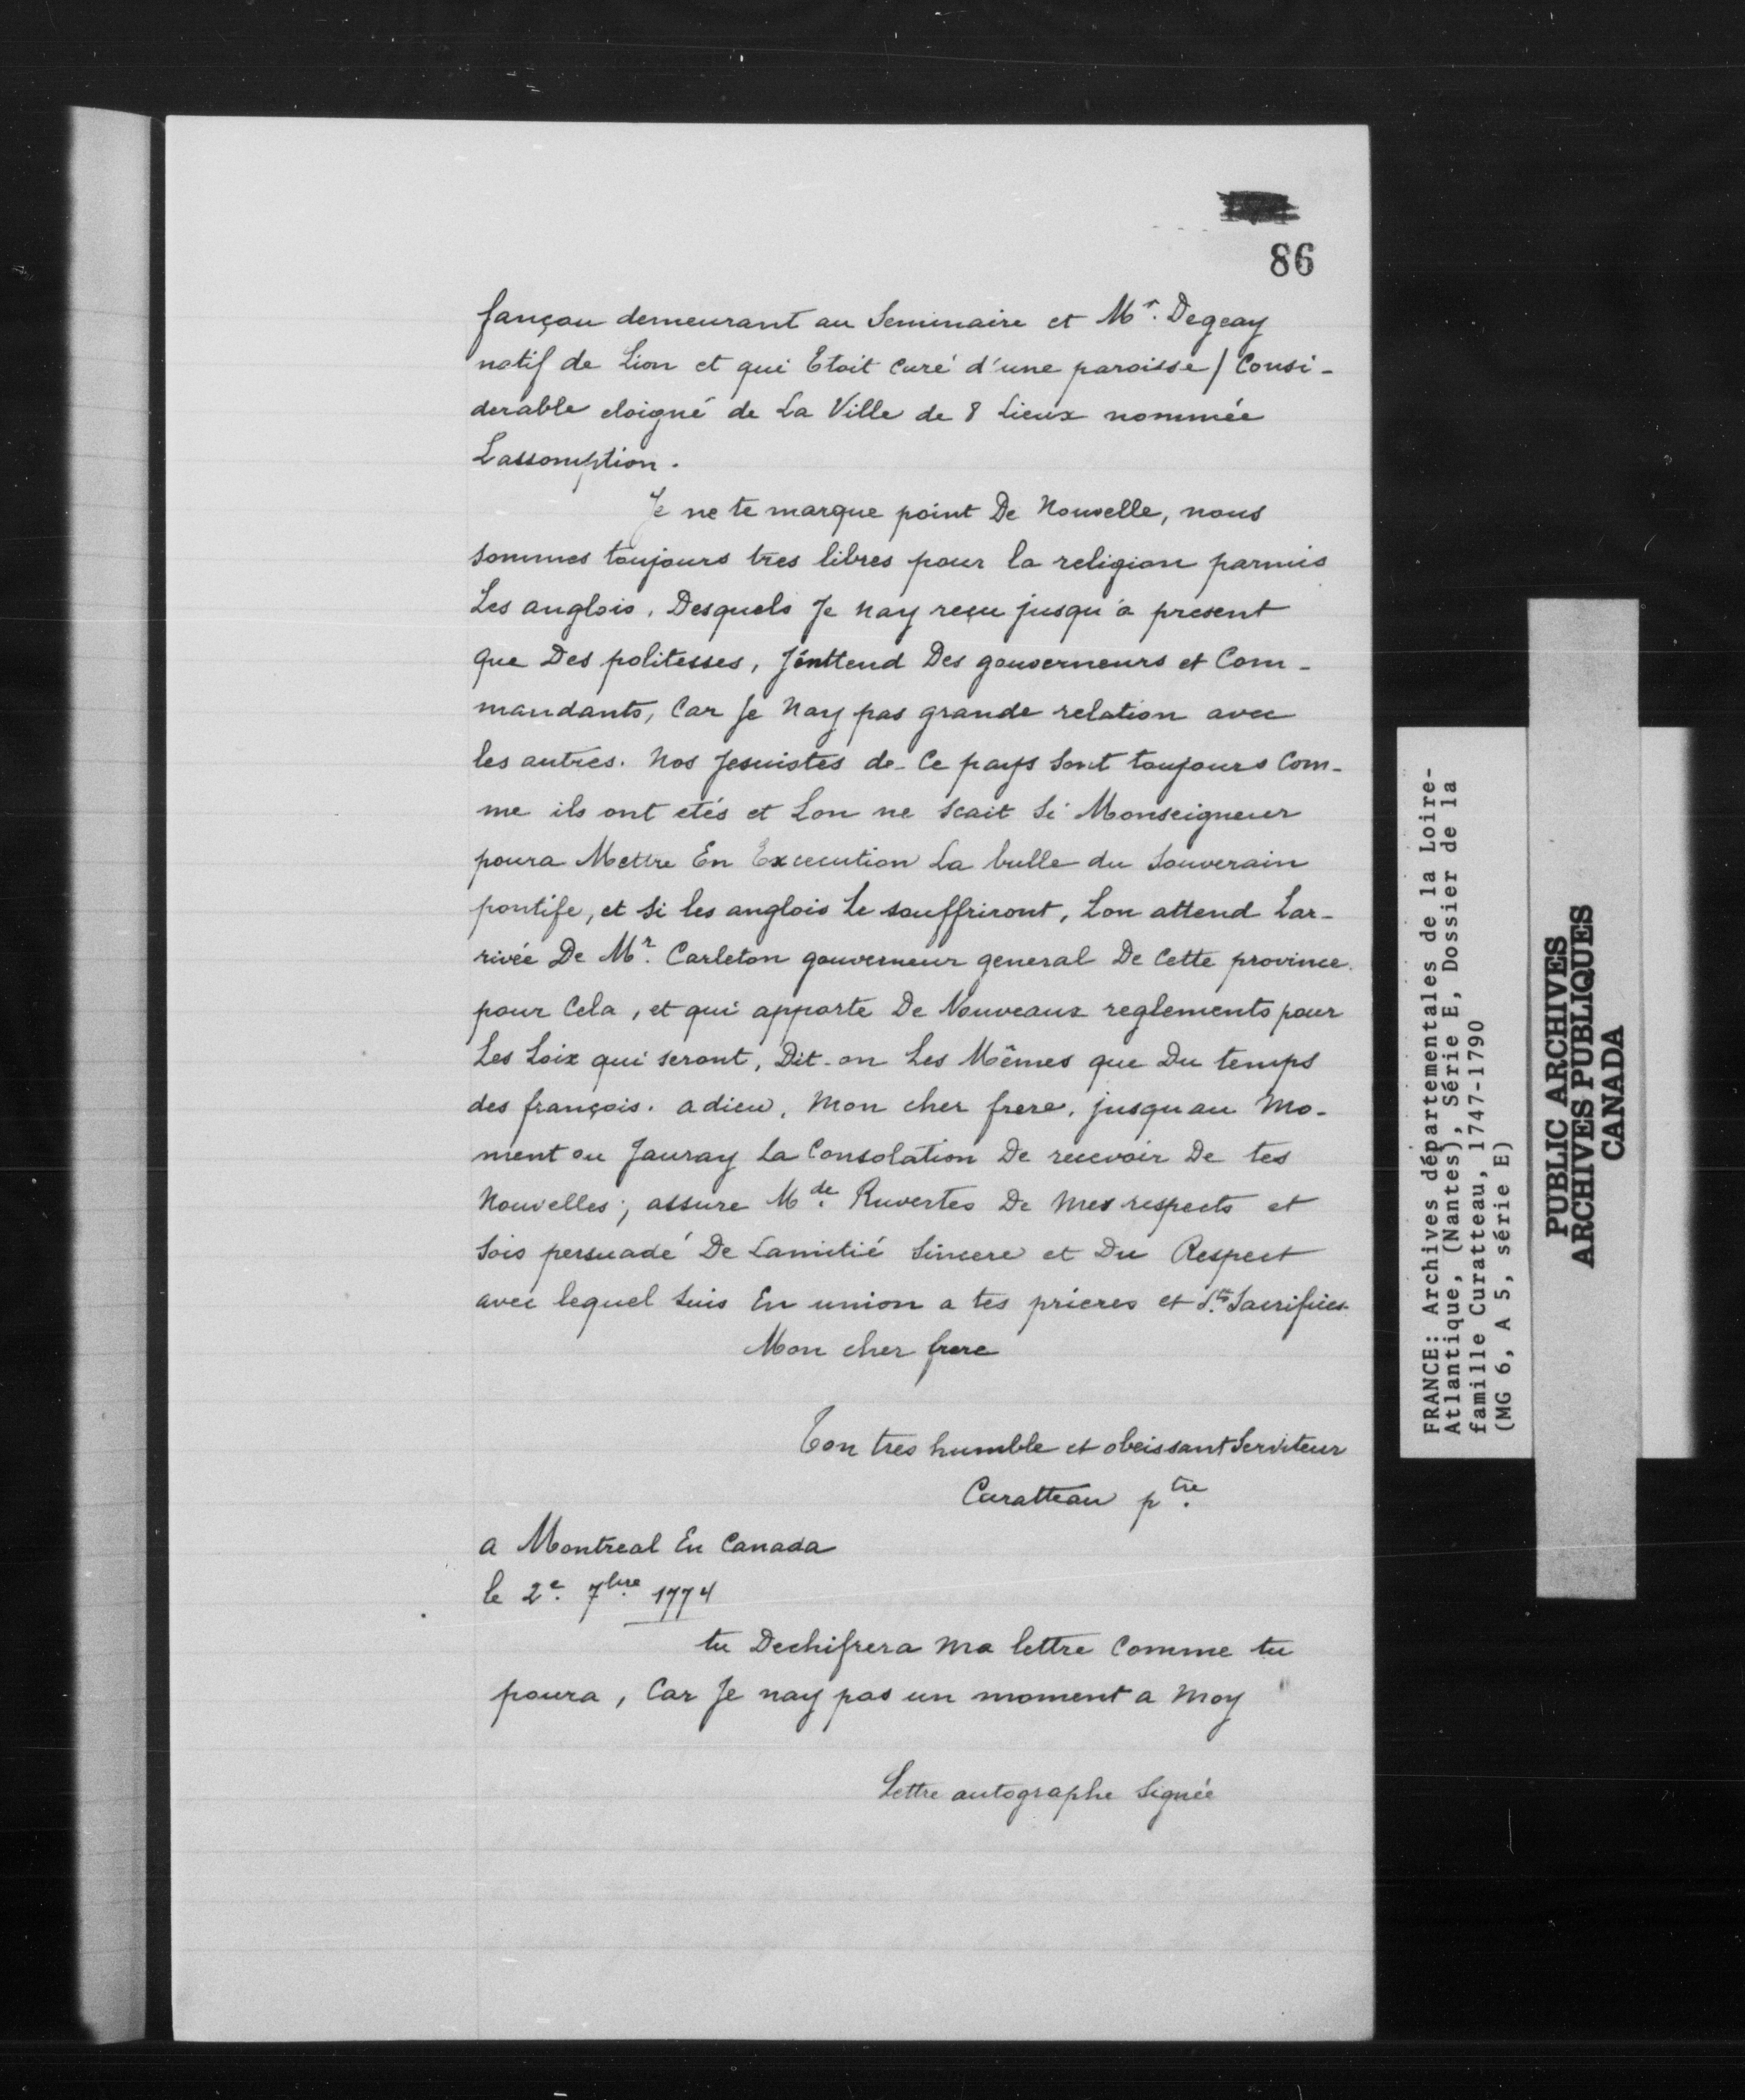 86
fançon demeurant au Seminaire et Mr. Degeay
natif de Lion et qui Etoit Curé d'une paroisse / Consi-
derable eloigné de La Ville de 8 Lieux nommée
Lassomption.
Je ne te marque point De Nouvelle, nous
sommes toujours tres libres pour la religion parmis
Les anglois, Desquels Je nay reçu jusqu'a present
que Des politesses, J'enttend Des gouverneurs et Com-
mandants, Car Je Nay pas grande relation avec
les autres. Nos Jesuistes de Ce pays Sont toujours Com-
me ils ont etés et Lon ne scait Si Monseigneur
poura Mettre En Excecution La bulle du Souverain
pontife, et Si les anglois Le souffriront, Lon attend Lar-
rivée De Mr. Carleton gouverneur general De Cette province
pour Cela, et qui apporte De Nouveaux reglements pour
Les Loix qui seront, Dit-on Les Mêmes que Du temps
des françois. adieu, Mon cher frere, jusquau Mo-
ment ou Jauray La Consolation De recevoir De tes
Nouvelles; assure Mde. Ruvertes De Mes respects et
Sois persuadé De Lamitié Sincere et Du Respect
avec lequel Suis En union a tes prieres et Sts. Sacrifices
Mon cher frere
Ton tres humble et obeissant Serviteur
Curatteau ptre.
a Montreal En Canada
le 2e. 7bre. 1774
tu Dechifrera Ma lettre Comme tu
poura, Car Je nay pas un moment a Moy
Lettre autographe Signée
FRANCE: Archives départementales de la Loire-
Atlantique, (Nantes), Série E, Dossier de la
famille Curatteau, 1747-1790
(MG 6, A 5, série E)
PUBLIC ARCHIVES
ARCHIVES PUBLIQUES
CANADA